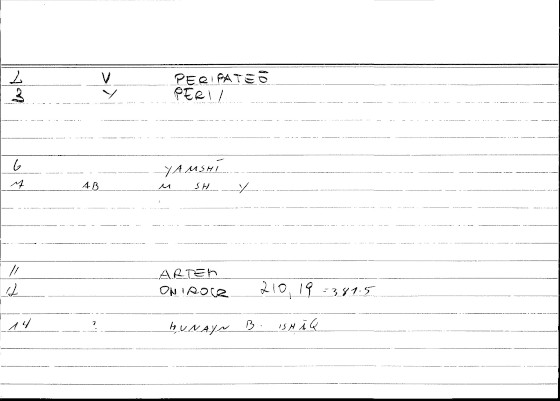 1 V PERIPATEŌ
3 Y PERI/
6 YAMSHĪ
7 AB M SH Y
11 ARTEM
12 ONIROCR 210,19 = 381.5
14 ? ḤUNAYN B. ISḤĀQ